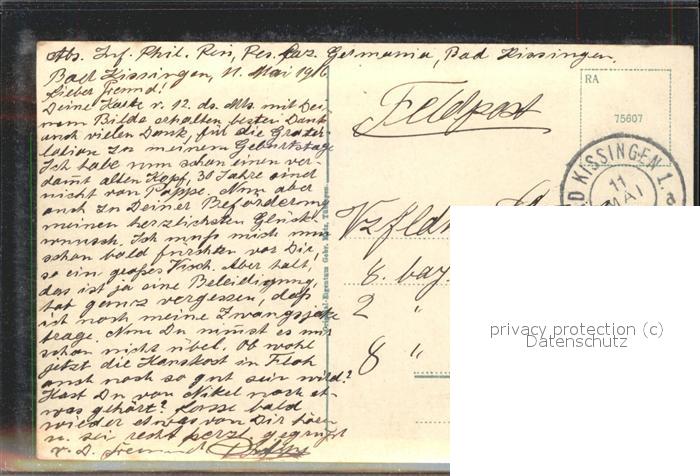 Abs. Inf. Phil. Rein, Res. Laz. Germania, Bad Kissingen.
Bad Kissingen, 11. Mai 1916
Lieber Freund!
Deine Karte v. 12. ds. Mts. mit Dei-
nem Bilde erhalten besten Dank
auch vielen Dank, für die Gratu-
lation zu meinem Geburtstage
Ich habe nun schon einen ver-
damt alten Kopf, 30 Jahre sind
nicht von Pappe. Nun aber
auch zu Deiner Beförderung
meinen herzlichsten Glück-
wunsch. Ich muß mich nun
schon bald fürchten vor Dir,
so ein großes Viech. Aber halt,
das ist ja eine Beleidigung,
hab ganz vergessen, daß
ich noch meine Zwangsjake
trage. Nun Du nimst es mir
schon nicht übel. Ob wohl
jetzt die Hanskost in
auch noch so gut sein wird?
Hast Du von Nikel noch et-
was gehört? Lasse bald
wieder etwas von Dir hören
u. sei recht herz. gegrüßt
v. D. Freund
Original-Eigentum Gebr. Metz, Tübingen.
Feldpost
RA
75607
BAD KISSINGEN 1.
11
MAI
Vzfeldw
8. bay.
2 "
8 "
privacy protection (c)
Datenschutz